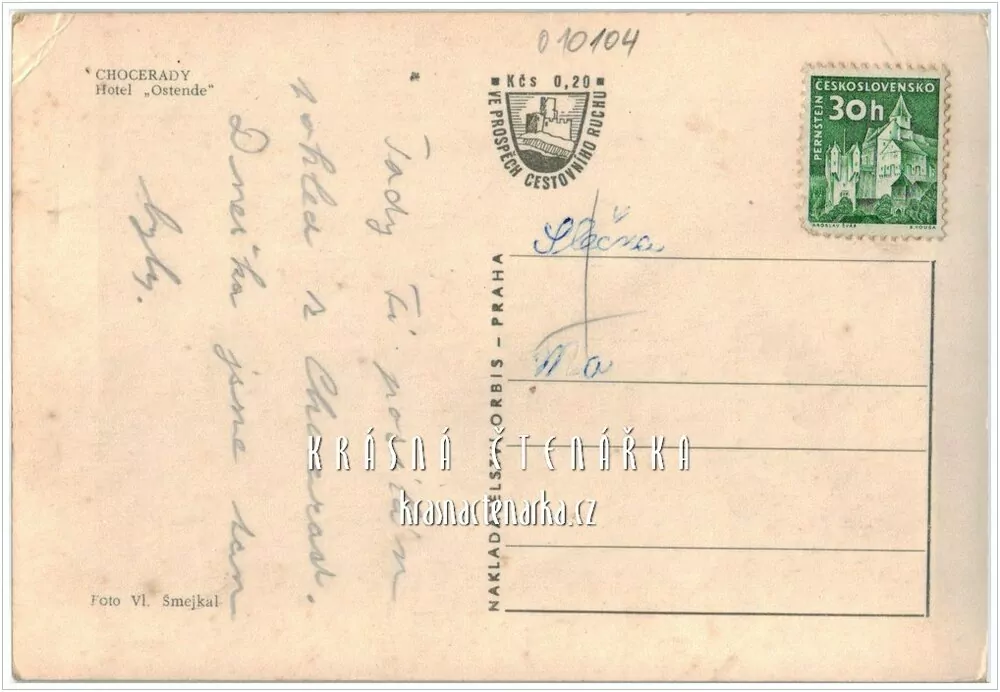 010104
CHOCERADY
Hotel „Ostende“
Kčs 0,20
VE PROSPĚCH CESTOVNÍHO RUCHU
ČESKOSLOVENSKO
30h
PERNŠTEJN
Tady Ti posílám
pohled z Chocerad.
Dneska jsme tam
byly.
Slečna
Ma
NAKLADATELSTVÍ ORBIS – PRAHA
KRÁSNÁ ČTENÁŘKA
krasnactenarka.cz
Foto Vl. Šmejkal